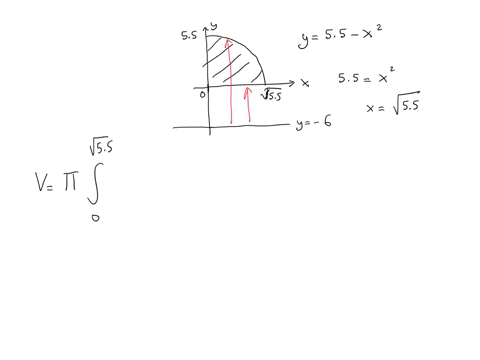 y
5.5
y = 5.5 - x²
0
√5.5
x
5.5 = x²
x = √5.5
y = -6
V = π ∫₀^√5.5